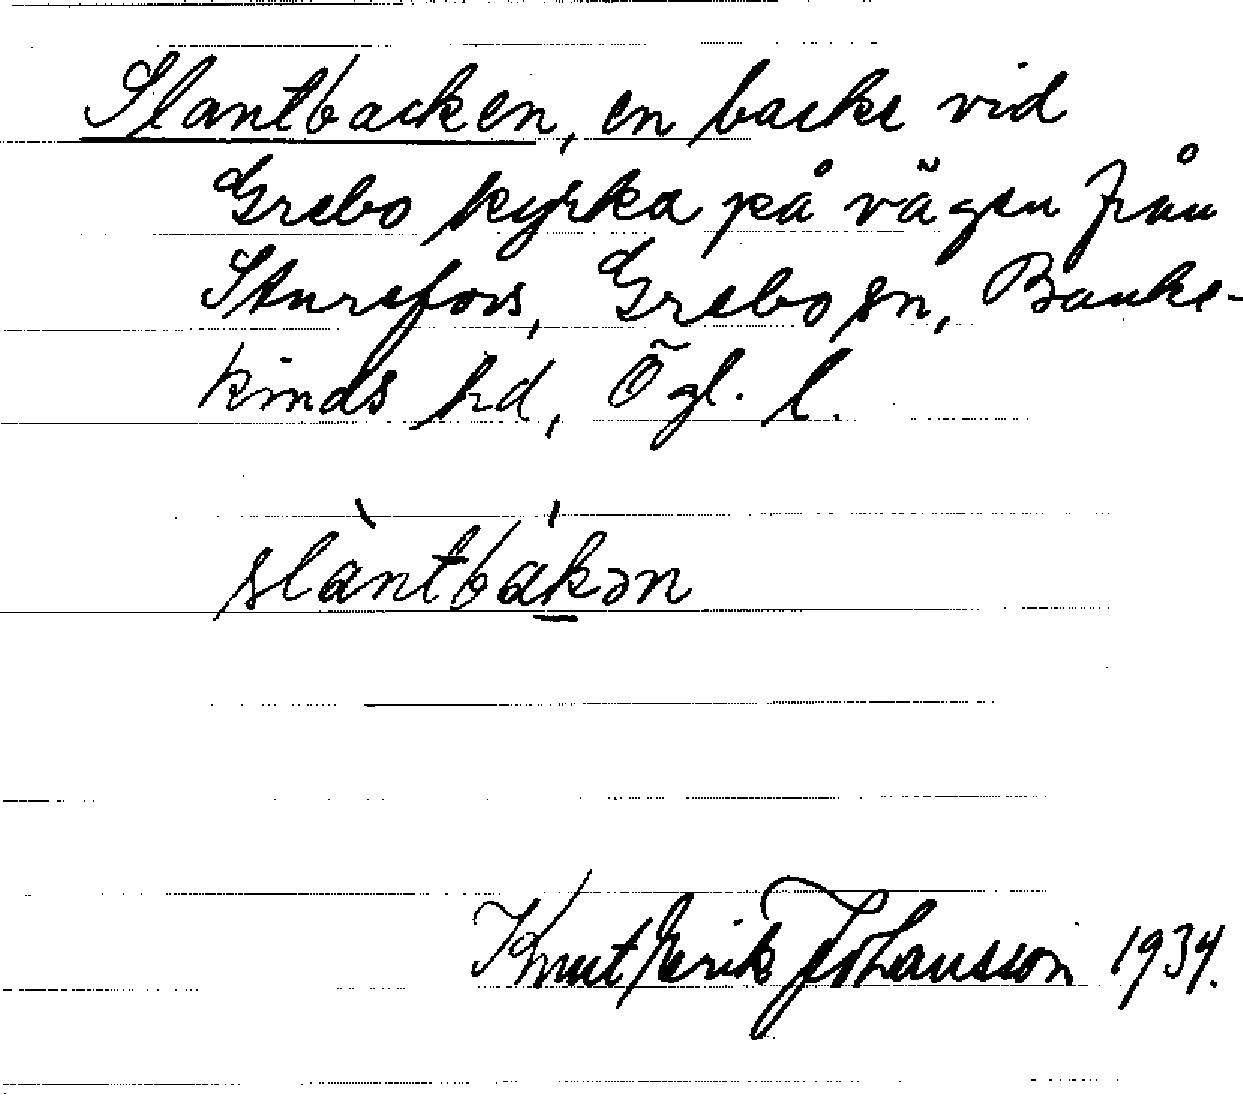 Slantbacken, en backe vid
Grebo kyrka på vägen från
Sturefors, Grebo sn, Banke-
kinds hd, Ögl. l.
slàntbákən
Knut Erik Johansson 1934.